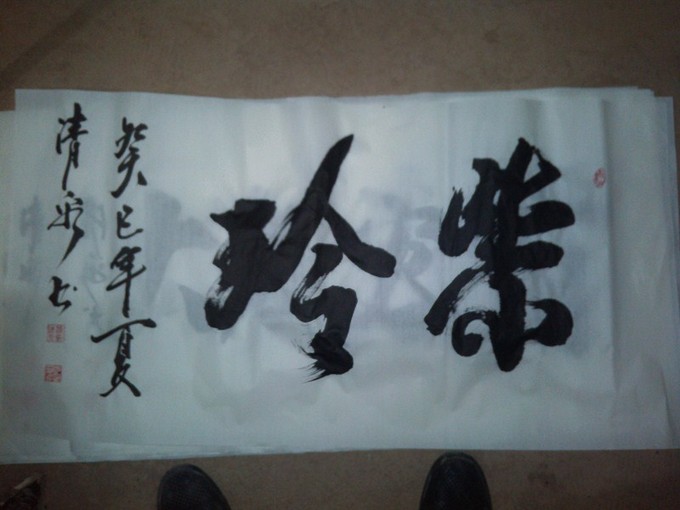 柴玲
癸巳年夏
清泉书